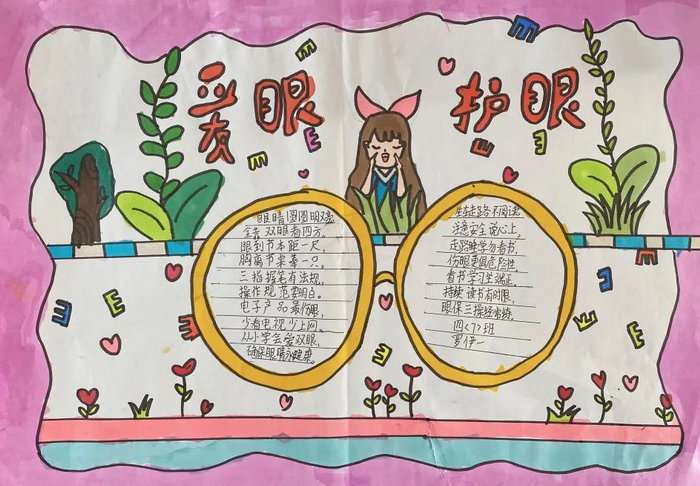 爱眼 护眼
眼睛圆圆明又亮
全靠双眼看四方。
眼到书本距一尺,
胸离书桌拳一个。
三指握笔有法规,
操作规范要明白。
电子产品最伤眼,
少看电视少上网。
从小学会爱双眼,
确保眼睛永健康。
走路不阅读
注意安全
走路时学勿看书,
伤眼更偏危险性。
看书学习坐端正,
持续读书有时限,
眼保三操经常练。
四〈7〉班
罗伊一